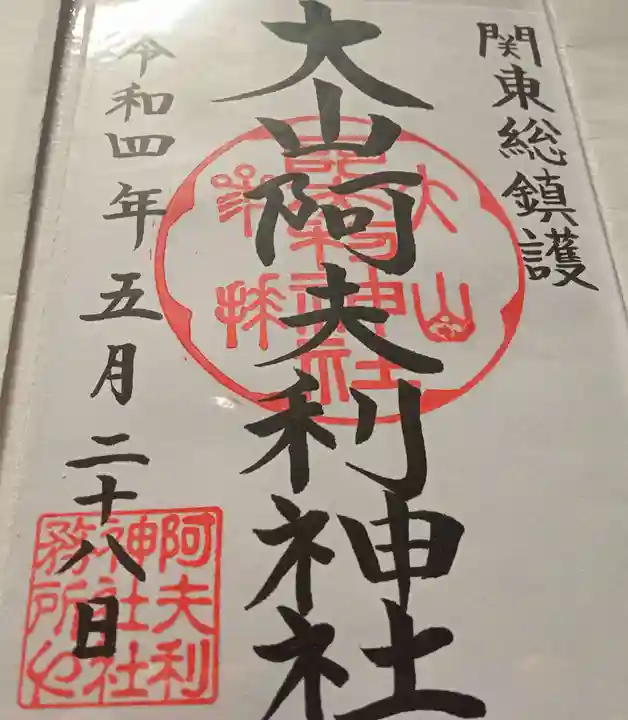 関東総鎮護
大山阿夫利神社
令和四年五月二十八日
大山
阿夫利神社
参拝
阿夫利
神社社
務所也